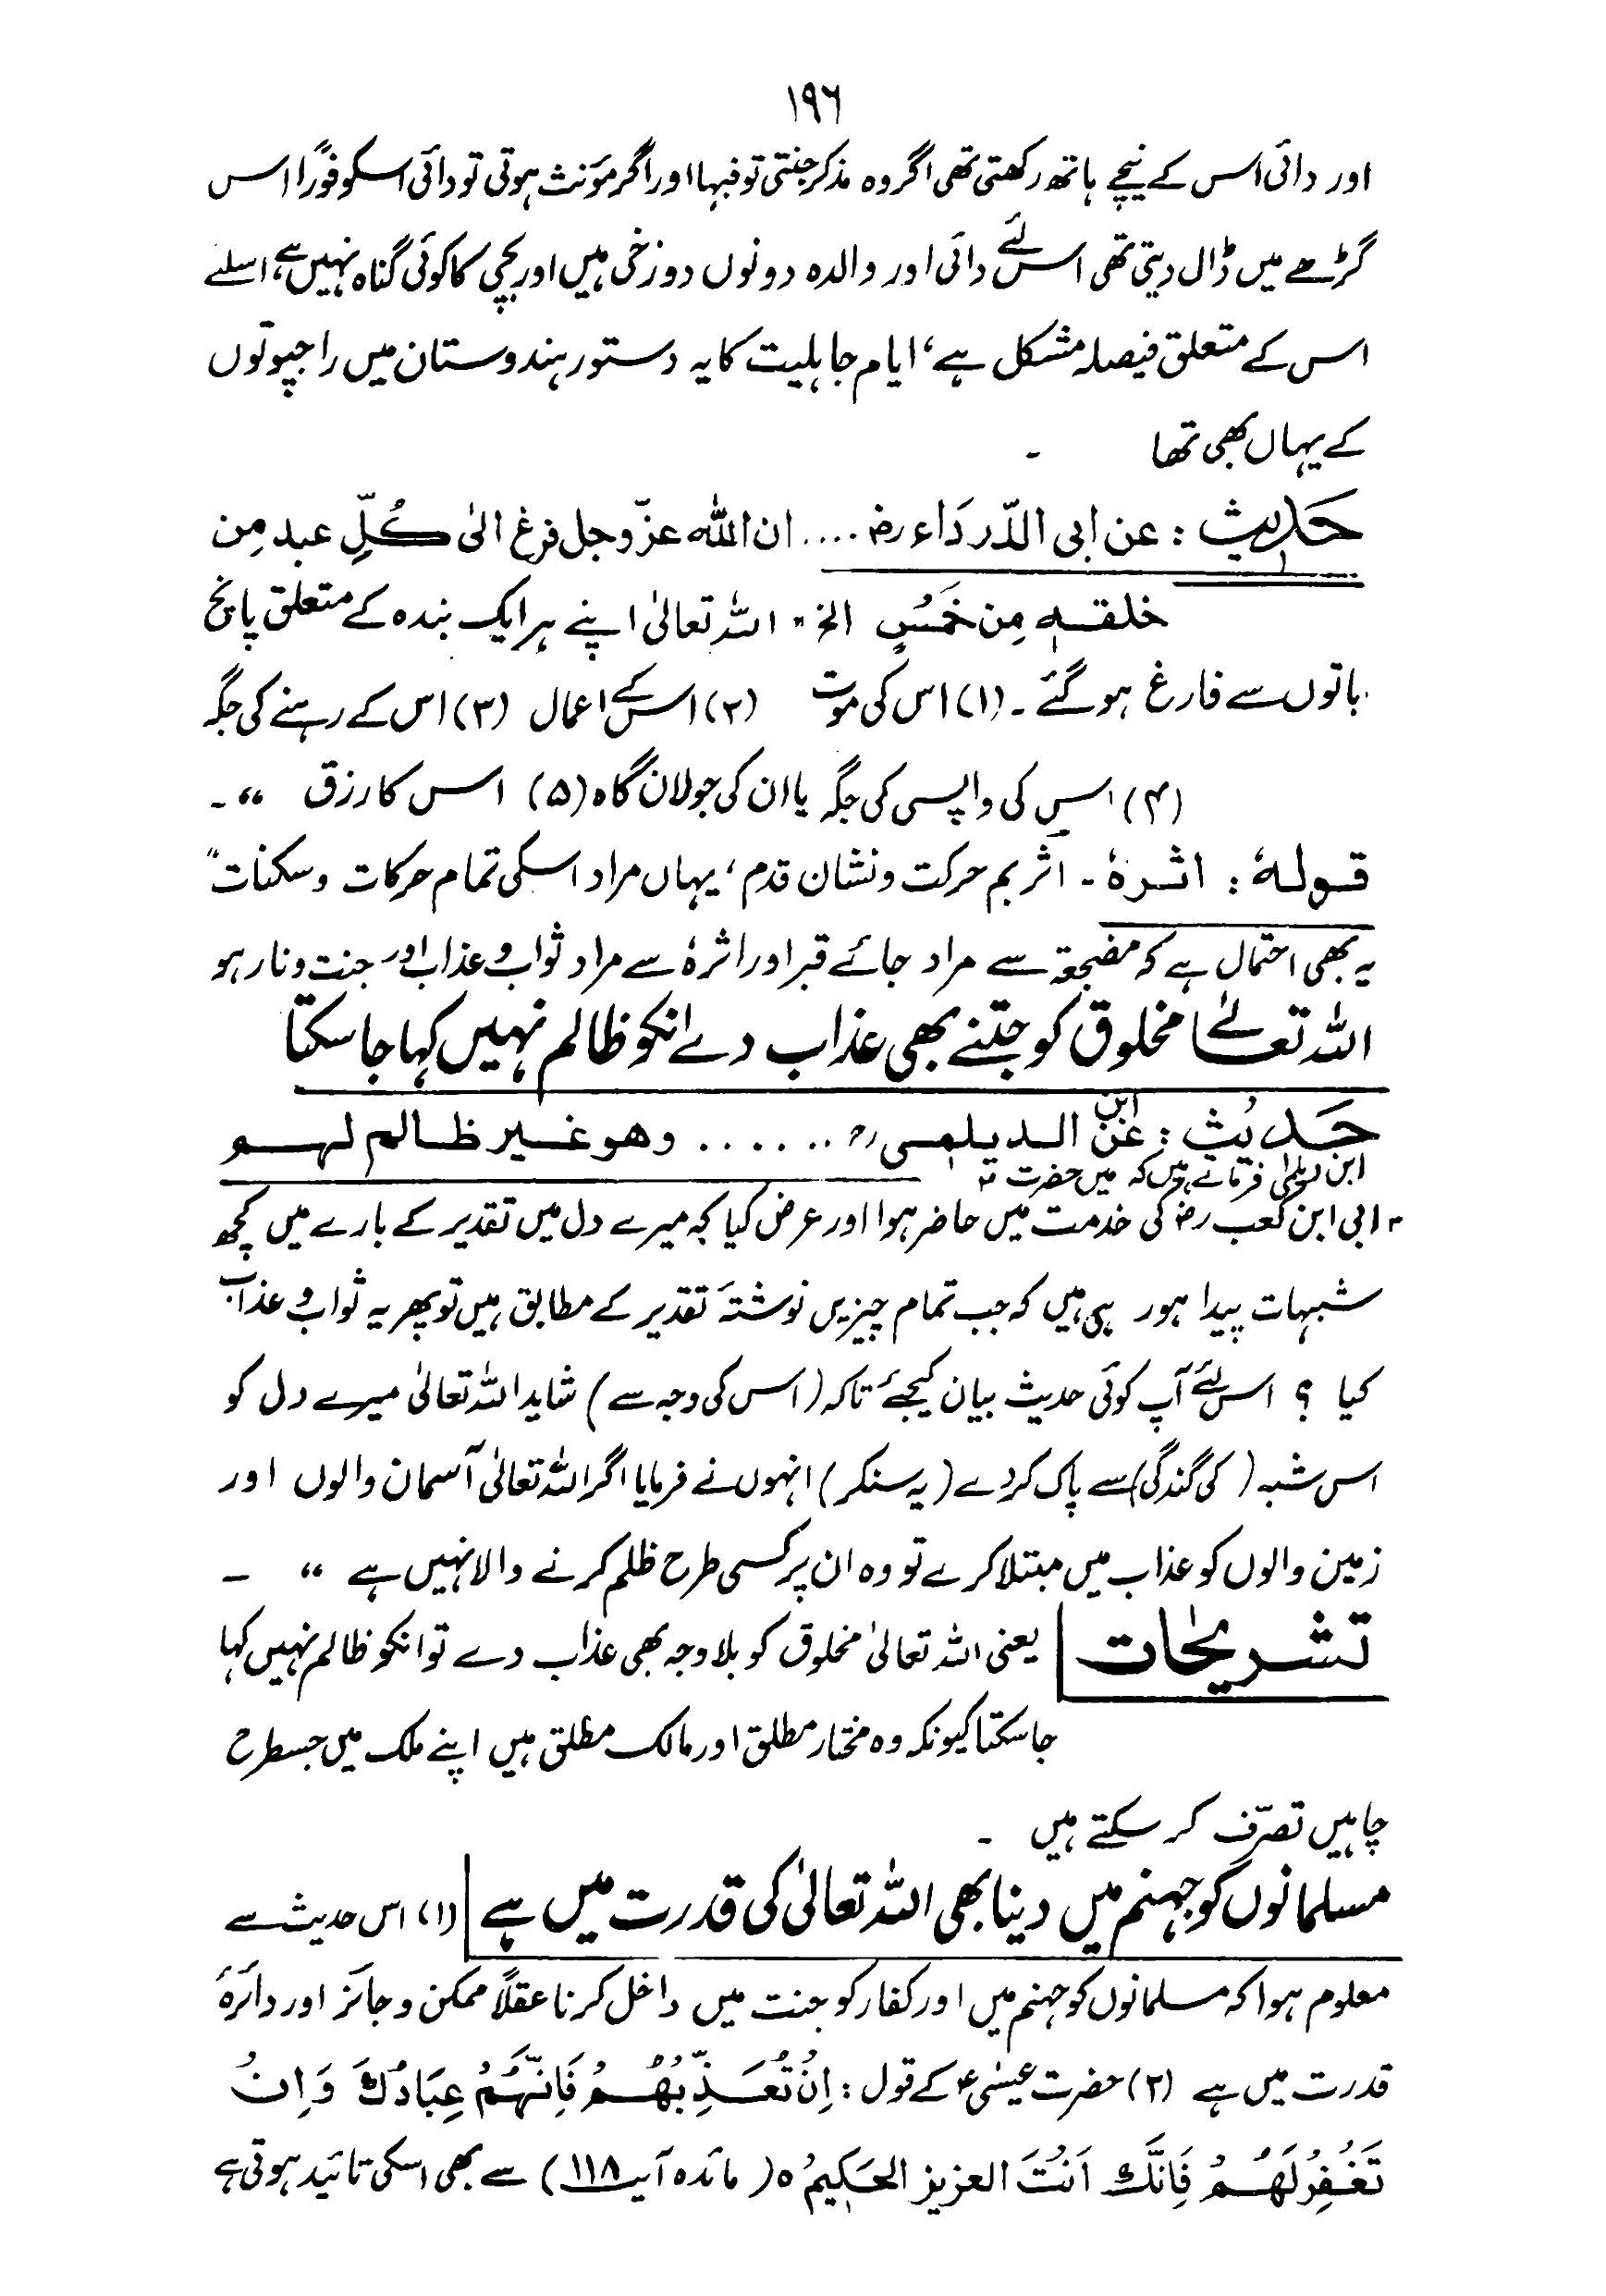 ۱۹۶
اور دائی اس کے نیچے ہاتھ رکھتی تھی اگر وہ مذکر جنتی تو فبہا اور اگر مؤنث ہوتی تو دائی اسکو فوراً اس
گڑھے میں ڈال دیتی تھی اس لئے دائی اور والدہ دونوں دوزخی ہیں اور بچی کا کوئی گناہ نہیں ہے، اسلئے
اس کے متعلق فیصلہ مشکل ہے، ایام جاہلیت کا یہ دستور ہندوستان میں راجپوتوں
کے یہاں بھی تھا ۔
حَدِیث : عن ابی الدّردَاء رض .... ان اللہ عزّوجل فرغ الیٰ کُلِّ عبد مِن
خلقہٖ مِن خَمْسٍ الخ " اللہ تعالیٰ اپنے ہر ایک بندہ کے متعلق پانچ
باتوں سے فارغ ہو گئے ۔ (۱) اس کی موت (۲) اس کے اعمال (۳) اس کے رہنے کی جگہ
(۴) اس کی واپسی کی جگہ یا ان کی جولان گاہ (۵) اس کا رزق " ۔
قولہٗ : اثرہٗ ۔ اثر بم حرکت و نشان قدم ، یہاں مراد اسکی تمام حرکات و سکنات "
یہ بھی احتمال ہے کہ مضجعہ سے مراد جائے قبر اور اثرہٗ سے مراد ثواب و عذاب اور جنت و نار ہو
اللہ تعالےٰ مخلوق کو جتنے بھی عذاب دے انکو ظالم نہیں کہا جا سکتا
حَدِیث : عَن ابن الدیلمی رح ...... وھو غیر ظالم لہم
ابن دیلمی فرماتے ہیں کہ میں حضرت
ابی ابن کعب رض کی خدمت میں حاضر ہوا اور عرض کیا کہ میرے دل میں تقدیر کے بارے میں کچھ
شبہات پیدا ہو رہی ہیں کہ جب تمام چیزیں نوشتۂ تقدیر کے مطابق ہیں تو پھر یہ ثواب و عذاب
کیا ؟ اس لئے آپ کوئی حدیث بیان کیجئے تاکہ (اس کی وجہ سے) شاید اللہ تعالیٰ میرے دل کو
اس شبہ (کی گندگی) سے پاک کر دے (یہ سنکر) انہوں نے فرمایا اگر اللہ تعالیٰ آسمان والوں اور
زمین والوں کو عذاب میں مبتلا کرے تو وہ ان پر کسی طرح ظلم کرنے والا نہیں ہے " ۔
تشریحات یعنی اللہ تعالیٰ مخلوق کو بلا وجہ بھی عذاب دے تو انکو ظالم نہیں کہا
جا سکتا کیونکہ وہ مختار مطلق اور مالک مطلق ہیں اپنے ملک میں جسطرح
چاہیں تصرّف کر سکتے ہیں ۔
مسلمانوں کو جہنم میں دینا بھی اللہ تعالیٰ کی قدرت میں ہے (۱) اس حدیث سے
معلوم ہوا کہ مسلمانوں کو جہنم میں اور کفار کو جنت میں داخل کرنا عقلاً ممکن و جائز اور دائرۂ
قدرت میں ہے (۲) حضرت عیسٰیؑ کے قول : اِنْ تُعَذِّبْهُمْ فَاِنَّهُمْ عِبَادُكَ وَاِنْ
تَغْفِرْ لَهُمْ فَاِنَّكَ اَنْتَ العزیز الحَکِیمُ ○ (مائدہ آیت ۱۱۸) سے بھی اسکی تائید ہوتی ہے